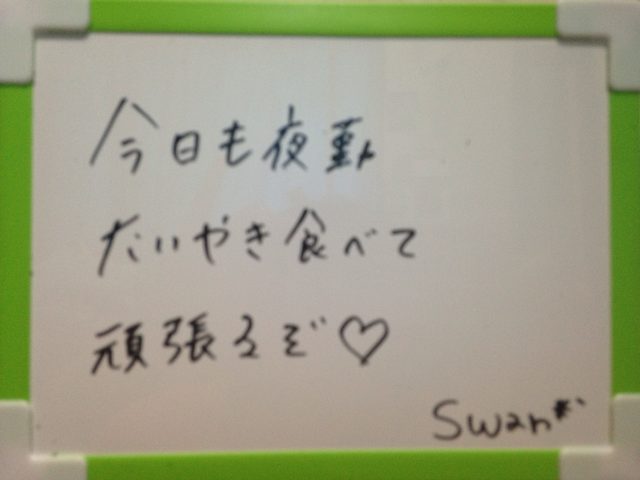 今日も夜勤
たいやき食べて
頑張るぞ♡
Swan